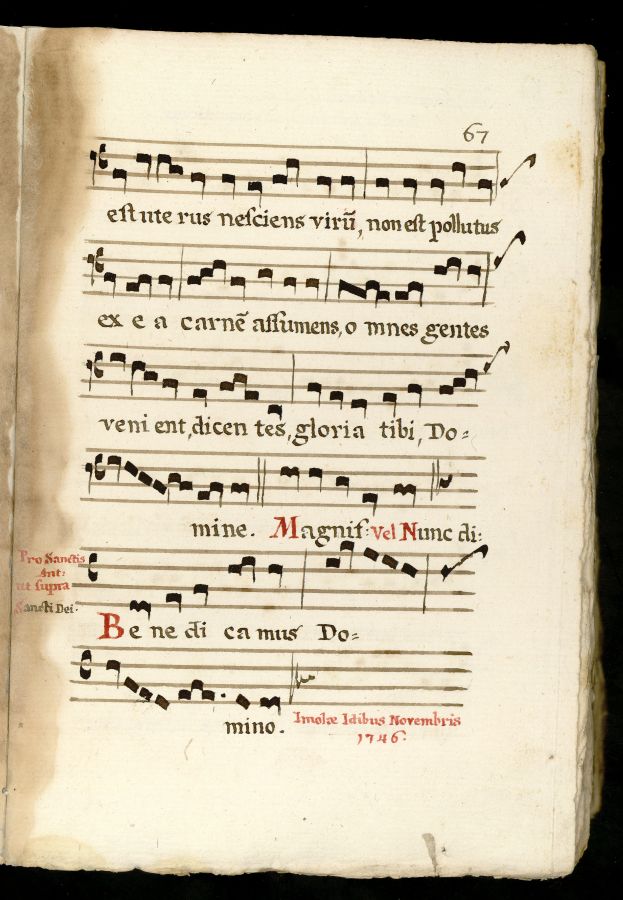 67
est ute rus nesciens virū, non est pollutus
ex e a carnē assumens, o mnes gentes
veni ent, dicen tes, gloria tibi, Do=
mine. Magnif: vel Nunc di:
Pro Sanctis
Ant:
ut supra
Sancti Dei.
Be ne di ca mus Do=
mino.
Imolæ Idibus Novembris
1746.